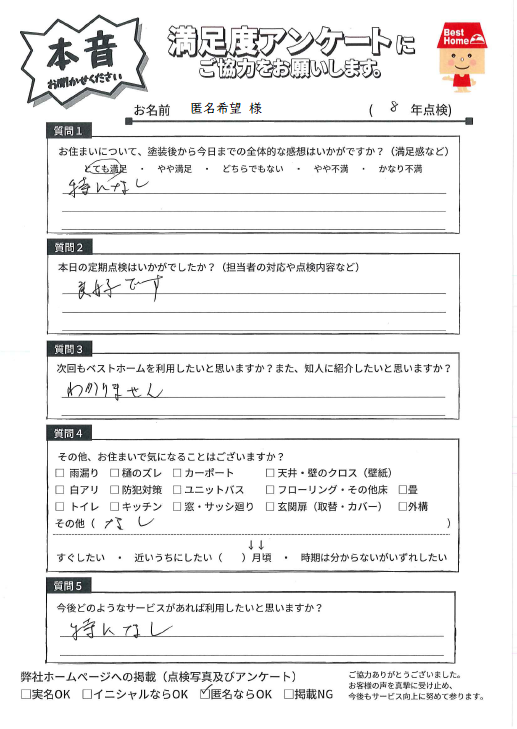 本音
お聞かせください
満足度アンケートに
ご協力をお願いします。
Best Home
お名前 匿名希望 様 ( 8 年点検)
質問1
お住まいについて、塗装後から今日までの全体的な感想はいかがですか？（満足感など）
とても満足 ・ やや満足 ・ どちらでもない ・ やや不満 ・ かなり不満
特になし
質問2
本日の定期点検はいかがでしたか？（担当者の対応や点検内容など）
良好です
質問3
次回もベストホームを利用したいと思いますか？また、知人に紹介したいと思いますか？
わかりません
質問4
その他、お住まいで気になることはございますか？
□ 雨漏り □ 樋のズレ □ カーポート □ 天井・壁のクロス（壁紙）
□ 白アリ □ 防犯対策 □ ユニットバス □ フローリング・その他床 □畳
□ トイレ □ キッチン □ 窓・サッシ廻り □ 玄関扉（取替・カバー） □外構
その他（ なし ）
↓↓
すぐしたい ・ 近いうちにしたい（ ）月頃 ・ 時期は分からないがいずれしたい
質問5
今後どのようなサービスがあれば利用したいと思いますか？
特になし
弊社ホームページへの掲載（点検写真及びアンケート）
□実名OK □イニシャルならOK ☑匿名ならOK □掲載NG
ご協力ありがとうございました。
お客様の声を真摯に受け止め、
今後もサービス向上に努めて参ります。